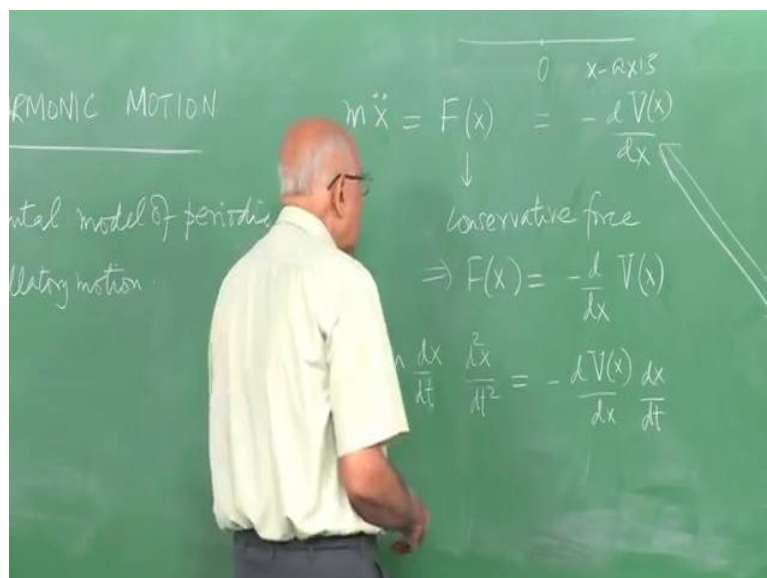 MOTION
model of periodic
motion.
0 x-axis
mẍ = F(x) = - dV(x)/dx
↓
conservative force
⇒ F(x) = - d/dx V(x)
dx/dt d²x/dt² = - dV(x)/dx dx/dt